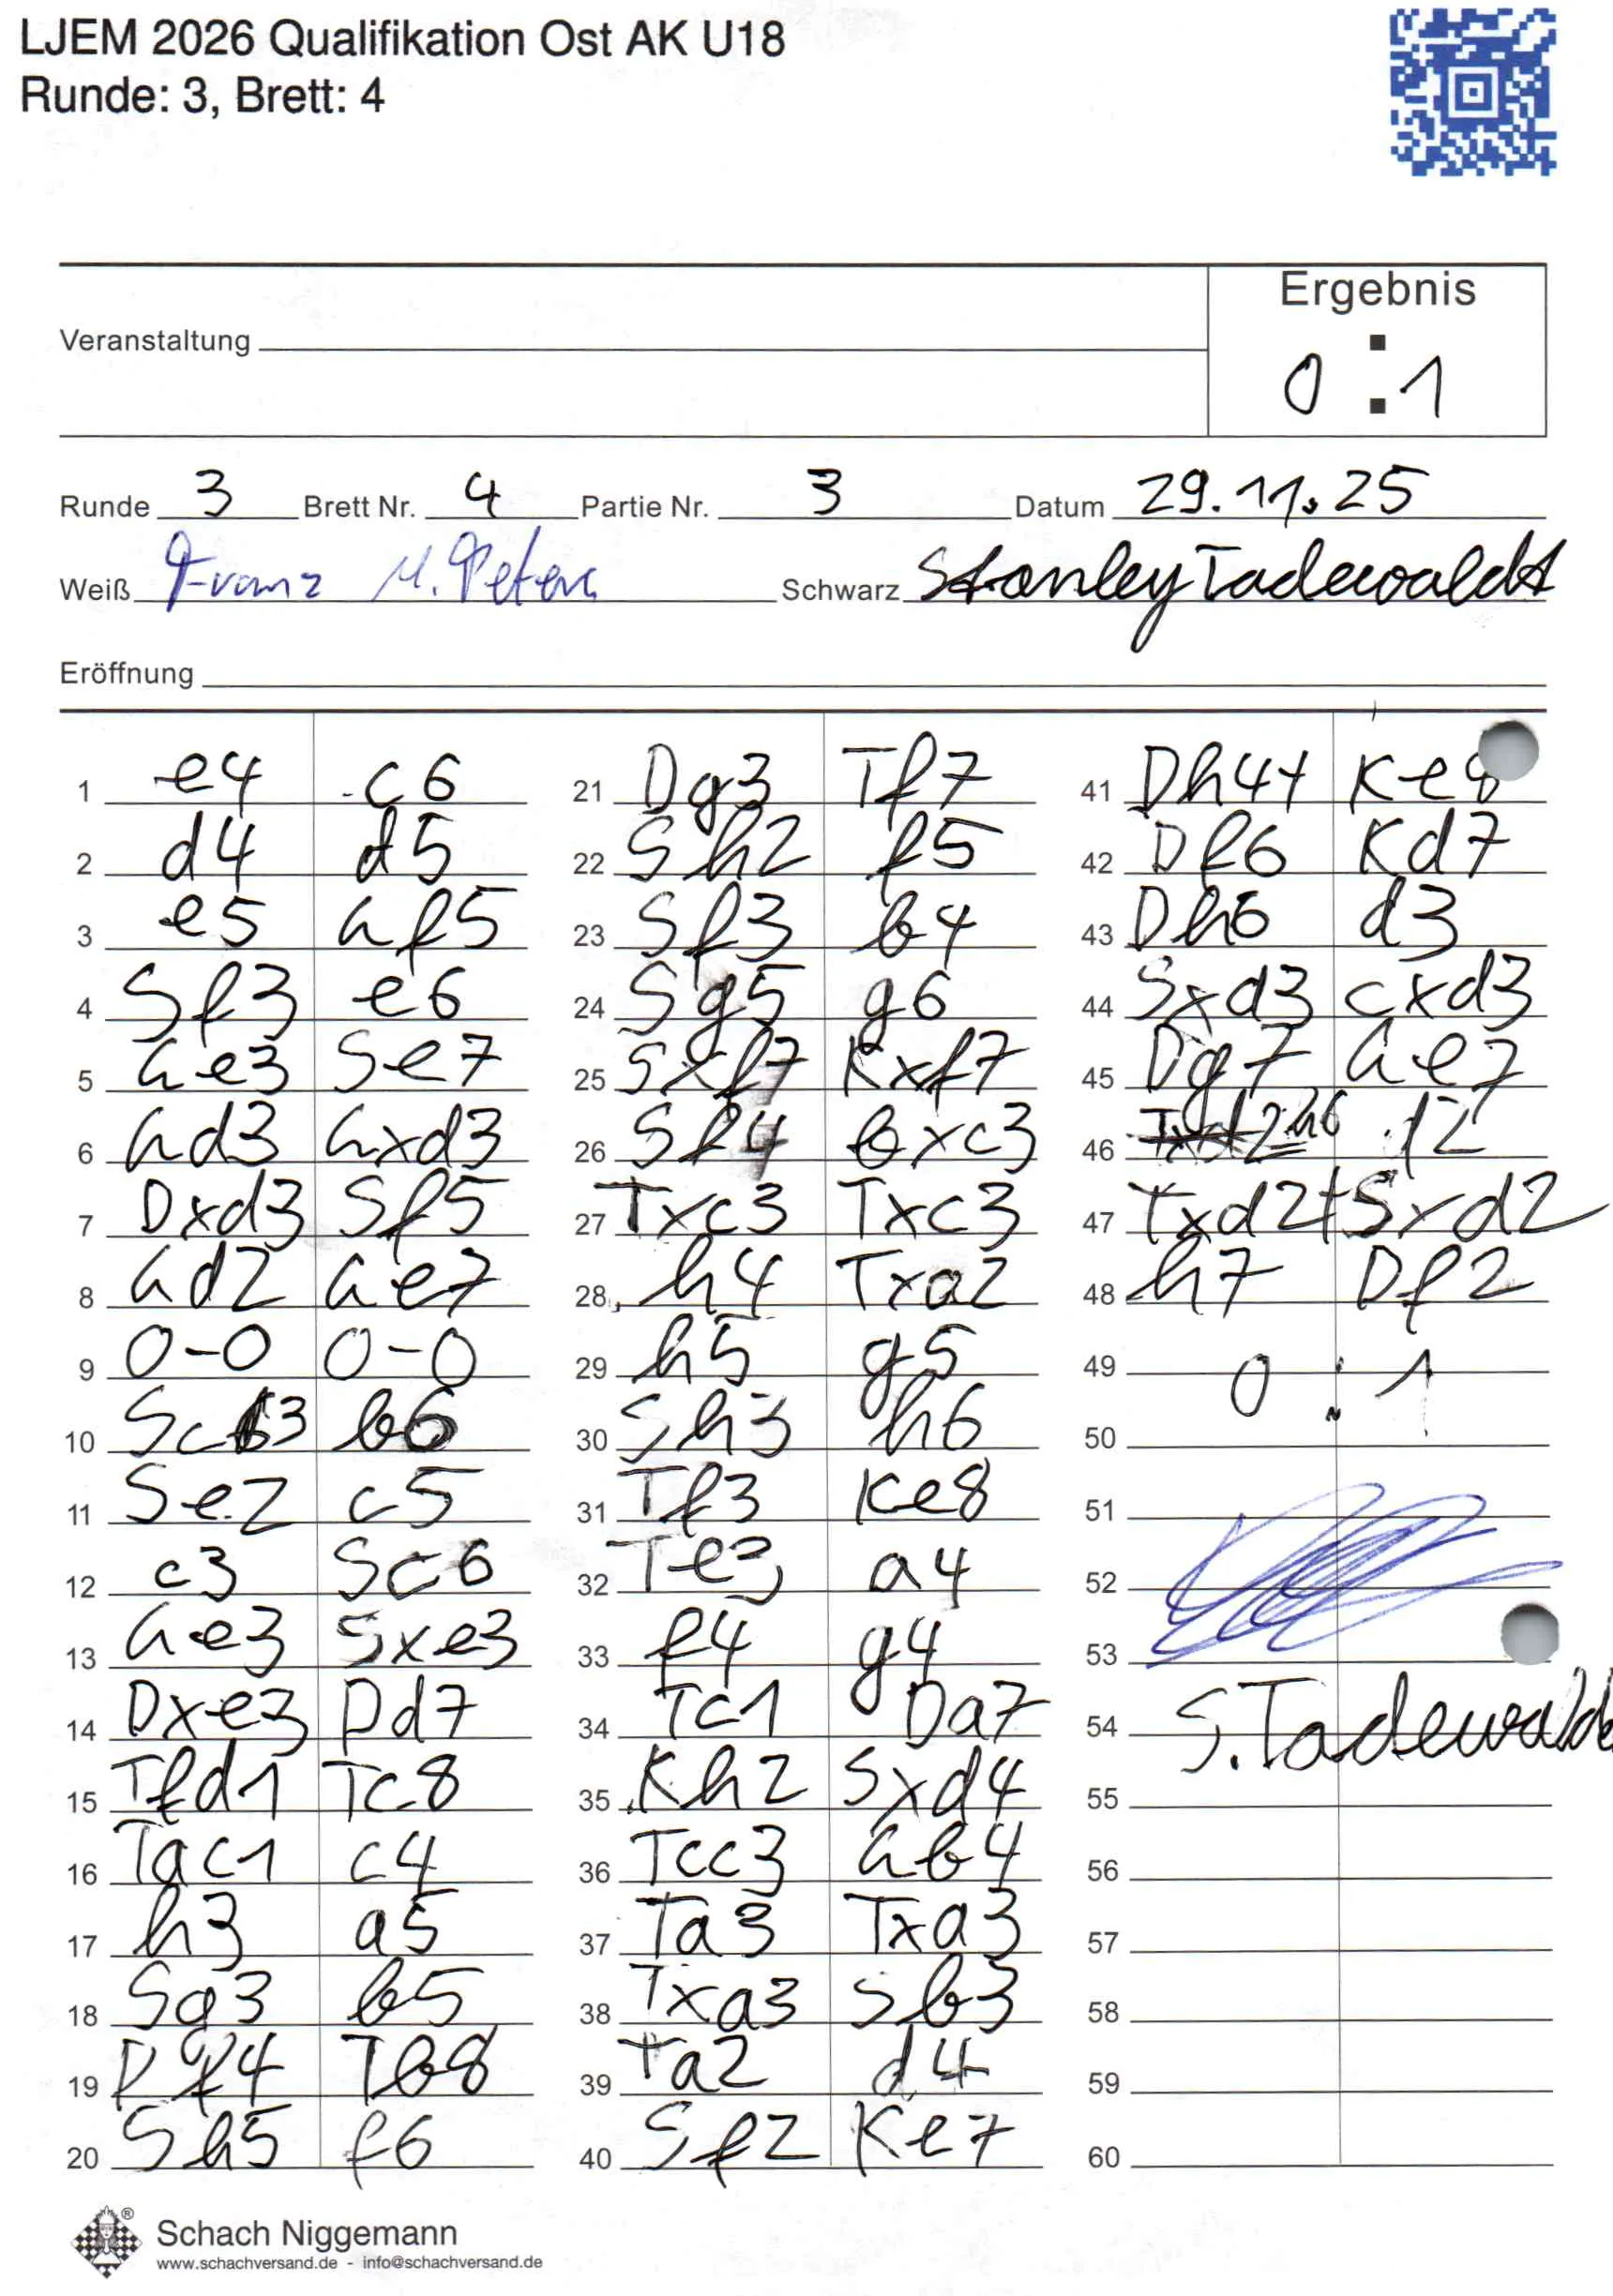 LJEM 2026 Qualifikation Ost AK U18
Runde: 3, Brett: 4
Ergebnis
Veranstaltung
0 : 1
Runde 3 Brett Nr. 4 Partie Nr. 3 Datum 29.11.25
Weiß Franz M. Peters Schwarz Stanley Tadewaldt
Eröffnung
1 e4 c6
2 d4 d5
3 e5 Lf5
4 Sf3 e6
5 Le3 Se7
6 Ld3 Lxd3
7 Dxd3 Sf5
8 Ld2 Le7
9 0-0 0-0
10 Sc3 b6
11 Se2 c5
12 c3 Sc6
13 Le3 Sxe3
14 Dxe3 Dd7
15 Tfd1 Tc8
16 Tac1 c4
17 h3 a5
18 Sg3 b5
19 Df4 Tb8
20 Sh5 f6
21 Dg3 Tf7
22 Sh2 f5
23 Sf3 b4
24 Sg5 g6
25 Sxf7 Kxf7
26 Sf4 bxc3
27 Txc3 Txc3
28 h4 Txa2
29 h5 g5
30 Sh3 h6
31 Tf3 Ke8
32 Te3 a4
33 f4 g4
34 Tc1 Da7
35 Kh2 Sxd4
36 Tcc3 Lb4
37 Ta3 Txa3
38 Txa3 Sb3
39 Ta2 d4
40 Sf2 Ke7
41 Dh4+ Ke8
42 Df6 Kd7
43 Dh6 d3
44 Sxd3 cxd3
45 Dg7 Le7
46 h6 d2
47 Txd2+ Sxd2
48 h7 Df2
49 0 : 1
50
51
52
53
54 S. Tadewald
55
56
57
58
59
60
Schach Niggemann
www.schachversand.de - info@schachversand.de